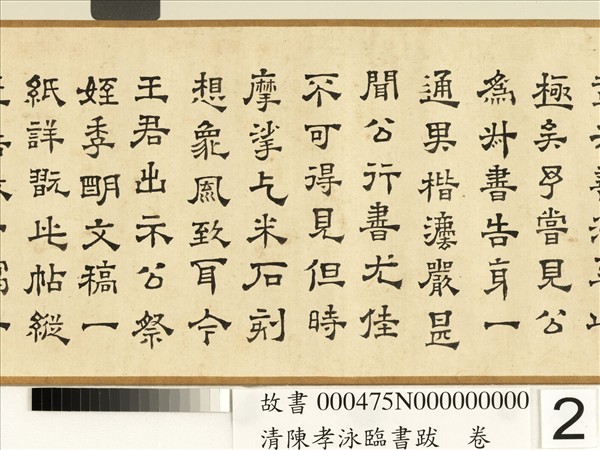 極矣予嘗見公
為書告身一
通果楷灋嚴
聞公行書尤佳
不可得見但時
摩挲乞米石刻
想象風致耳今
王君出示公祭
姪季朙文稿一
紙詳翫此帖縱
故書 000475N000000000
清陳孝泳臨書跋 卷
2